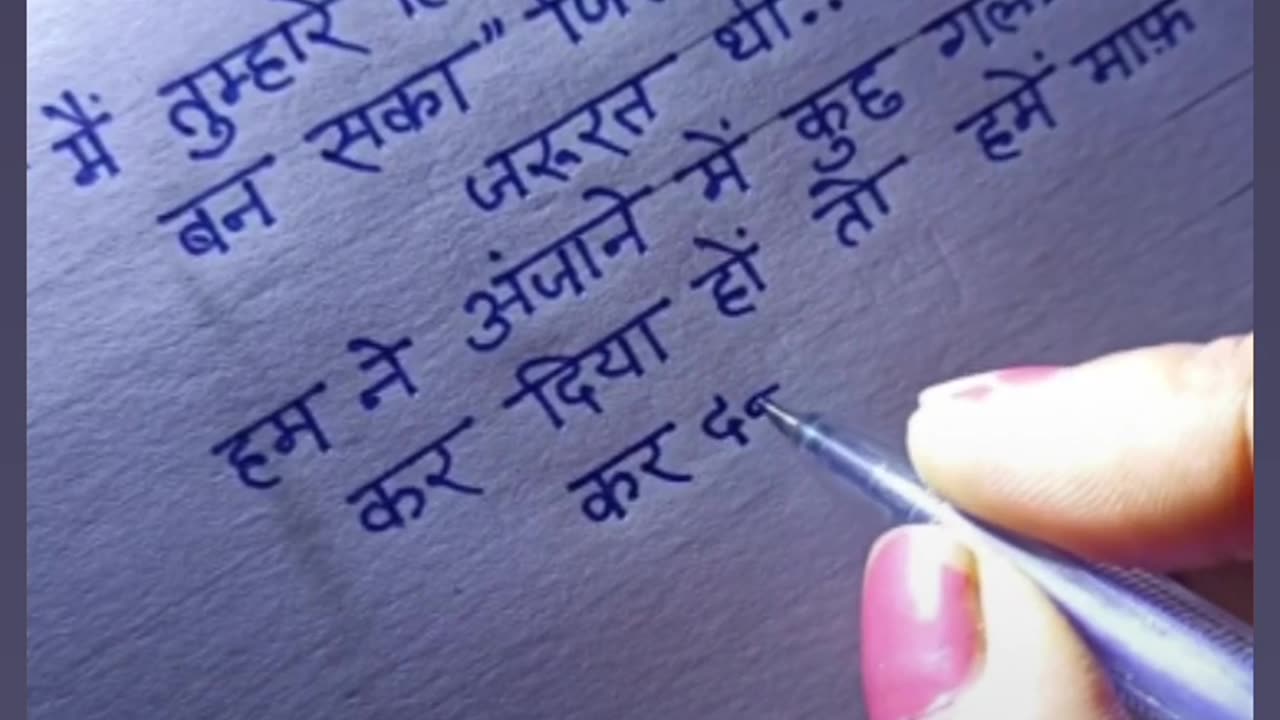 मैं तुम्हारे
बन सका”
जरूरत थी..
हम ने अंजाने में कुछ
कर दिया हों तो हमें माफ़
कर